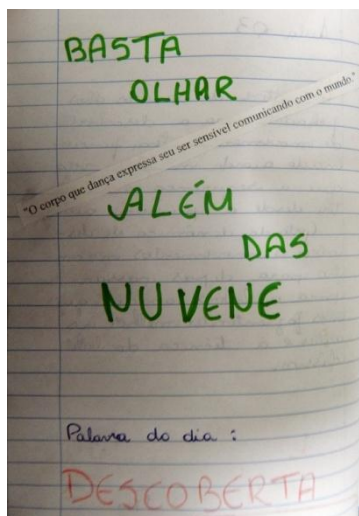 BASTA
OLHAR
"O corpo que dança expressa seu ser sensível comunicando com o mundo."
ALÉM
DAS
NUVENE
Palavra do dia :
DESCOBERTA